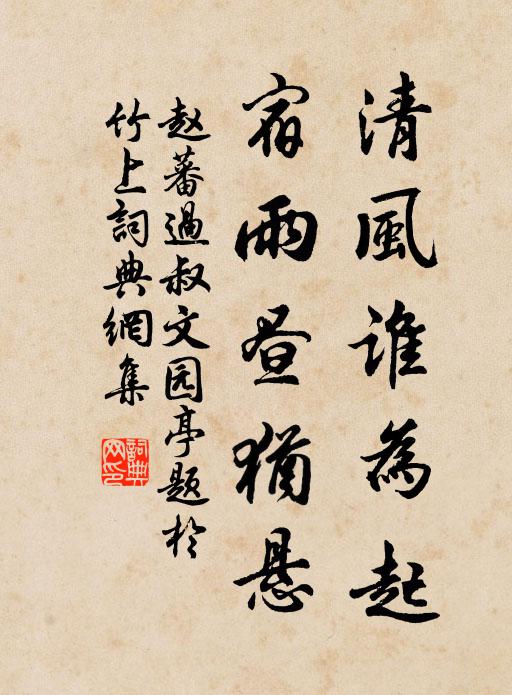 清風誰為起
宿雨昼猶悬
赵蕃過叔文园亭题於
竹上詞典網集
詞典
网印